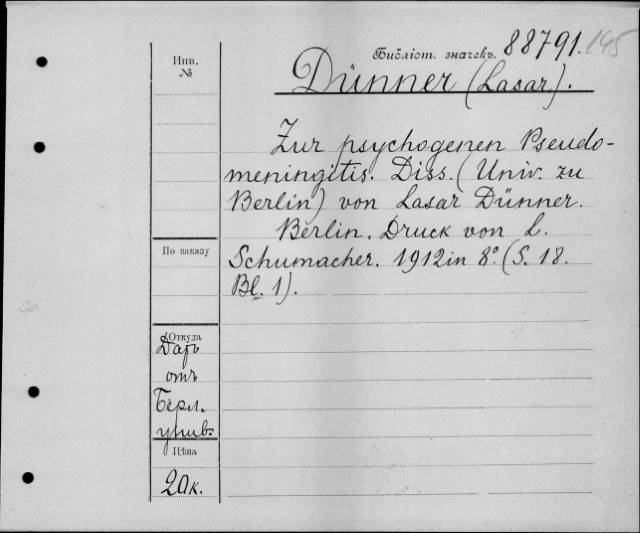 Библіот. значекъ. 88791. 145
Инв.
№
Dünner (Lasar).
Zur psychogenen Pseudo-
meningitis. Diss. (Univ. zu
Berlin) von Lasar Dünner.
Berlin. Druck von L.
По заказу
Schumacher. 1912 in 8°. (S. 18.
Bl. 1).
Откуда
Даръ
отъ
Берл.
унив.
Цѣна
20к.